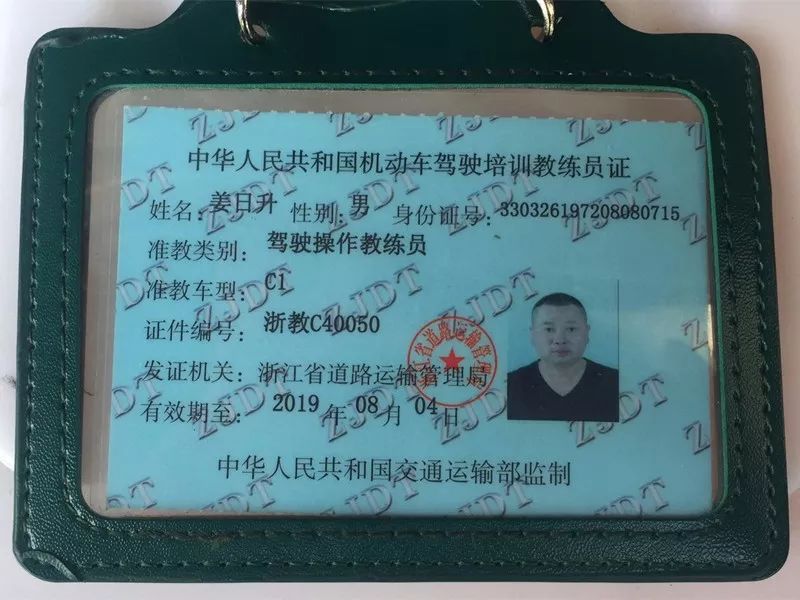 中华人民共和国机动车驾驶培训教练员证
姓名:姜日升 性别:男 身份证号:330326197208080715
准教类别: 驾驶操作教练员
准教车型: C1
证件编号: 浙教C40050
发证机关: 浙江省道路运输管理局
有效期至: 2019 年 08 月 04 日
中华人民共和国交通运输部监制
ZJDT